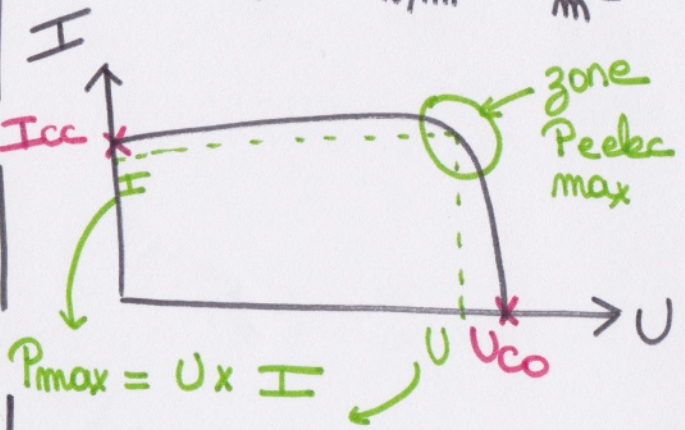 I
Icc
zone
Pelec
max
I
U
Uco
U
Pmax = U x I